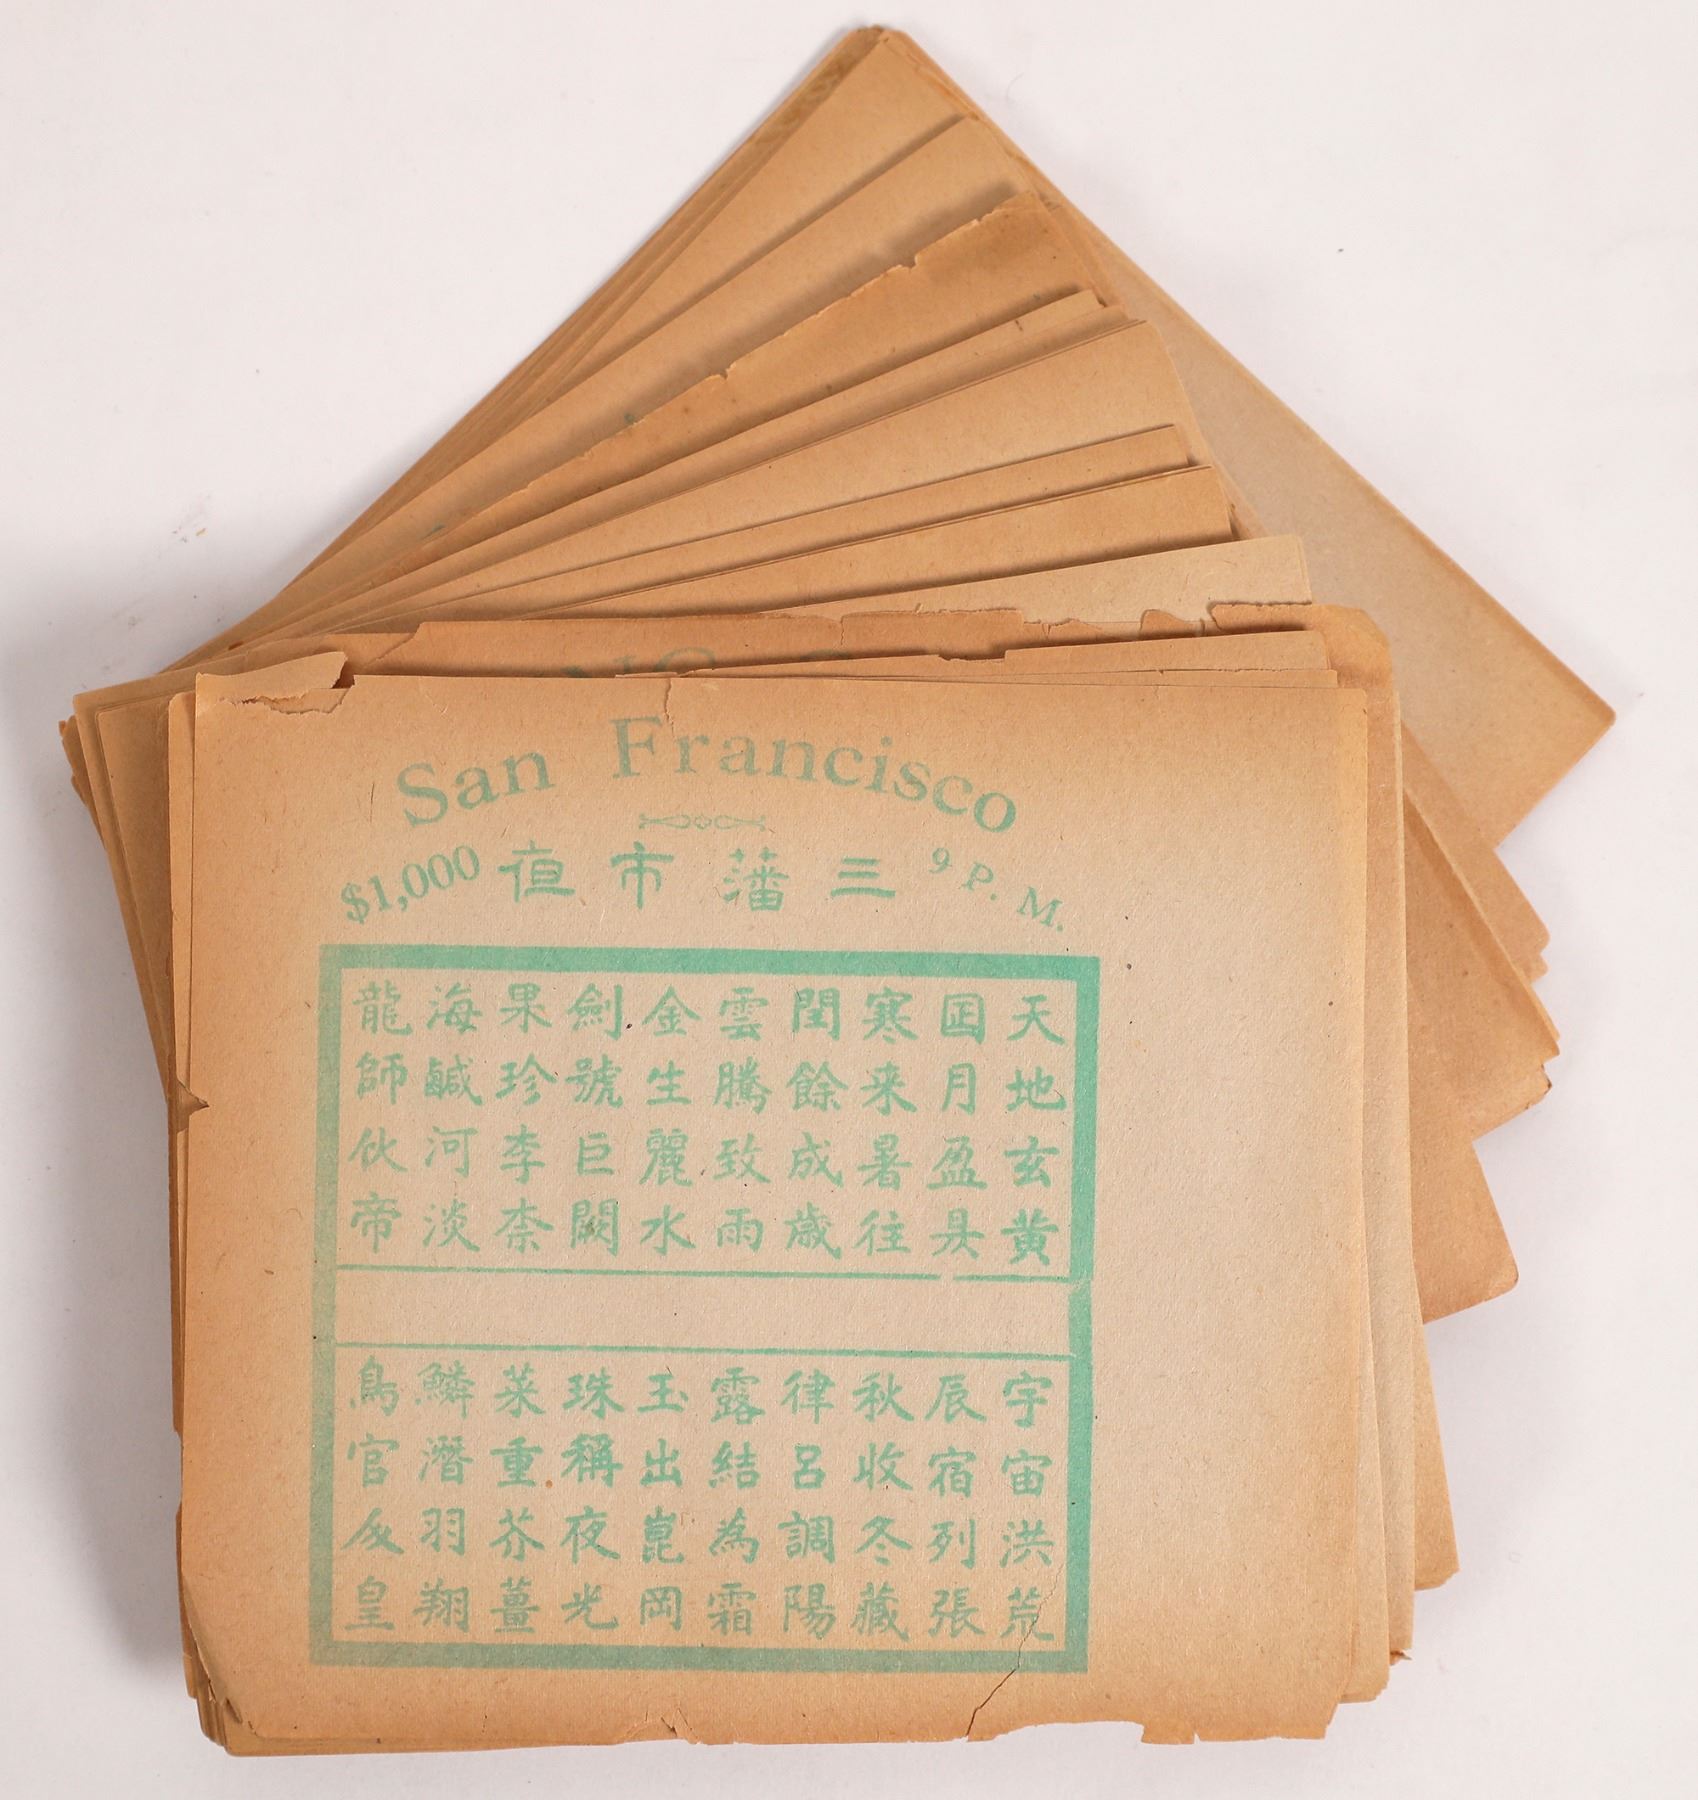 San Francisco
$1,000 三藩市亱 9 P.M.
天地玄黄
囸月盈昃
寒来暑往
閏餘成歲
雲騰致雨
金生麗水
劍號巨闕
果珍李柰
海鹹河淡
龍師伙帝
宇宙洪荒
辰宿列張
秋收冬藏
律呂調陽
露結為霜
玉出崑岡
珠稱夜光
菜重芥薑
鱗潛羽翔
鳥官人皇